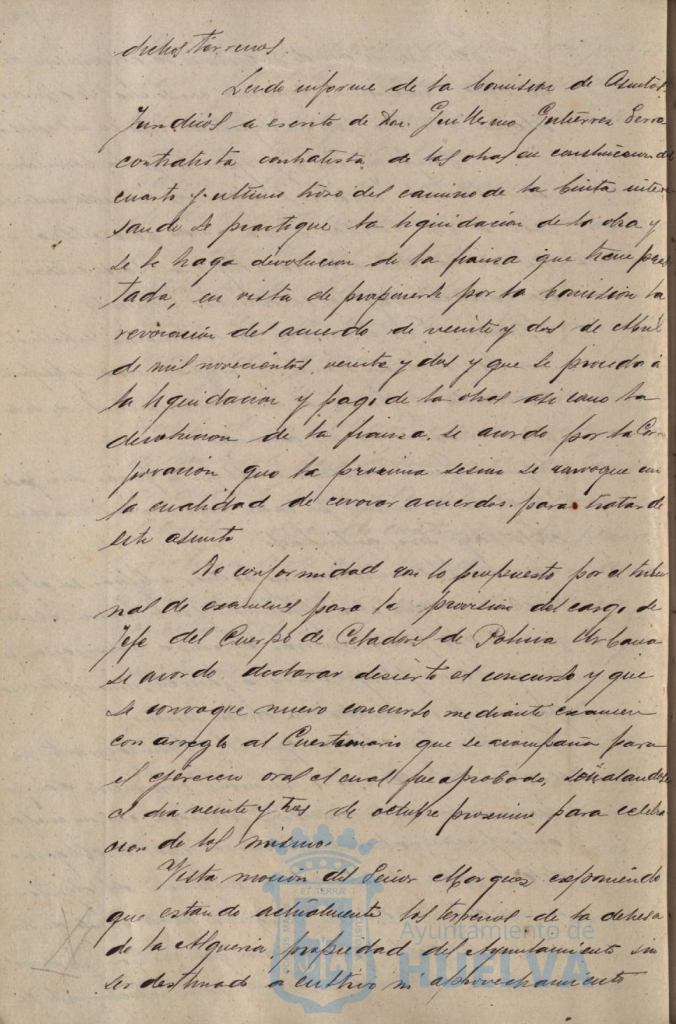 dichos terrenos.
Leido informe de la Comision de Asuntos
Juridicos a escrito de Don Guillermo Gutierrez Serra
contratista contratista de las obras en construccion del
cuarto y ultimo trozo del camino de la Cinta intere
sando se practique la liquidacion de la obra y
se le haga devolucion de la fianza que tiene pres
tada, en vista de proponerse por la Comision la
revocacion del acuerdo de veinte y dos de Abril
de mil novecientos veinte y dos y que se proceda á
la liquidacion y pago de la obra asi como la
devolucion de la fianza. se acordo por la Cor
poracion que la proxima sesion se convoque con
la cualidad de revocar acuerdos para tratar de
este asunto
De conformidad con lo propuesto por el tribu
nal de examenes para la provision del cargo de
Jefe del Cuerpo de Celadores de Policia Urbana
se acordo declarar desierto el concurso y que
se convoque nuevo concurso mediante examen
con arreglo al Cuestionario que se acompaña para
el ejercicio oral el cual fue aprobado, señalandose
el dia veinte y tres de octubre proximo para celebra
cion de los mismos.
Vista mocion del Señor Marquez exponiendo
que estando actualmente los terrenos de la dehesa
de la Alqueria, propiedad del Ayuntamiento sin
ser destinado a cultivo ni aprovechamiento
Ayuntamiento de
HUELVA